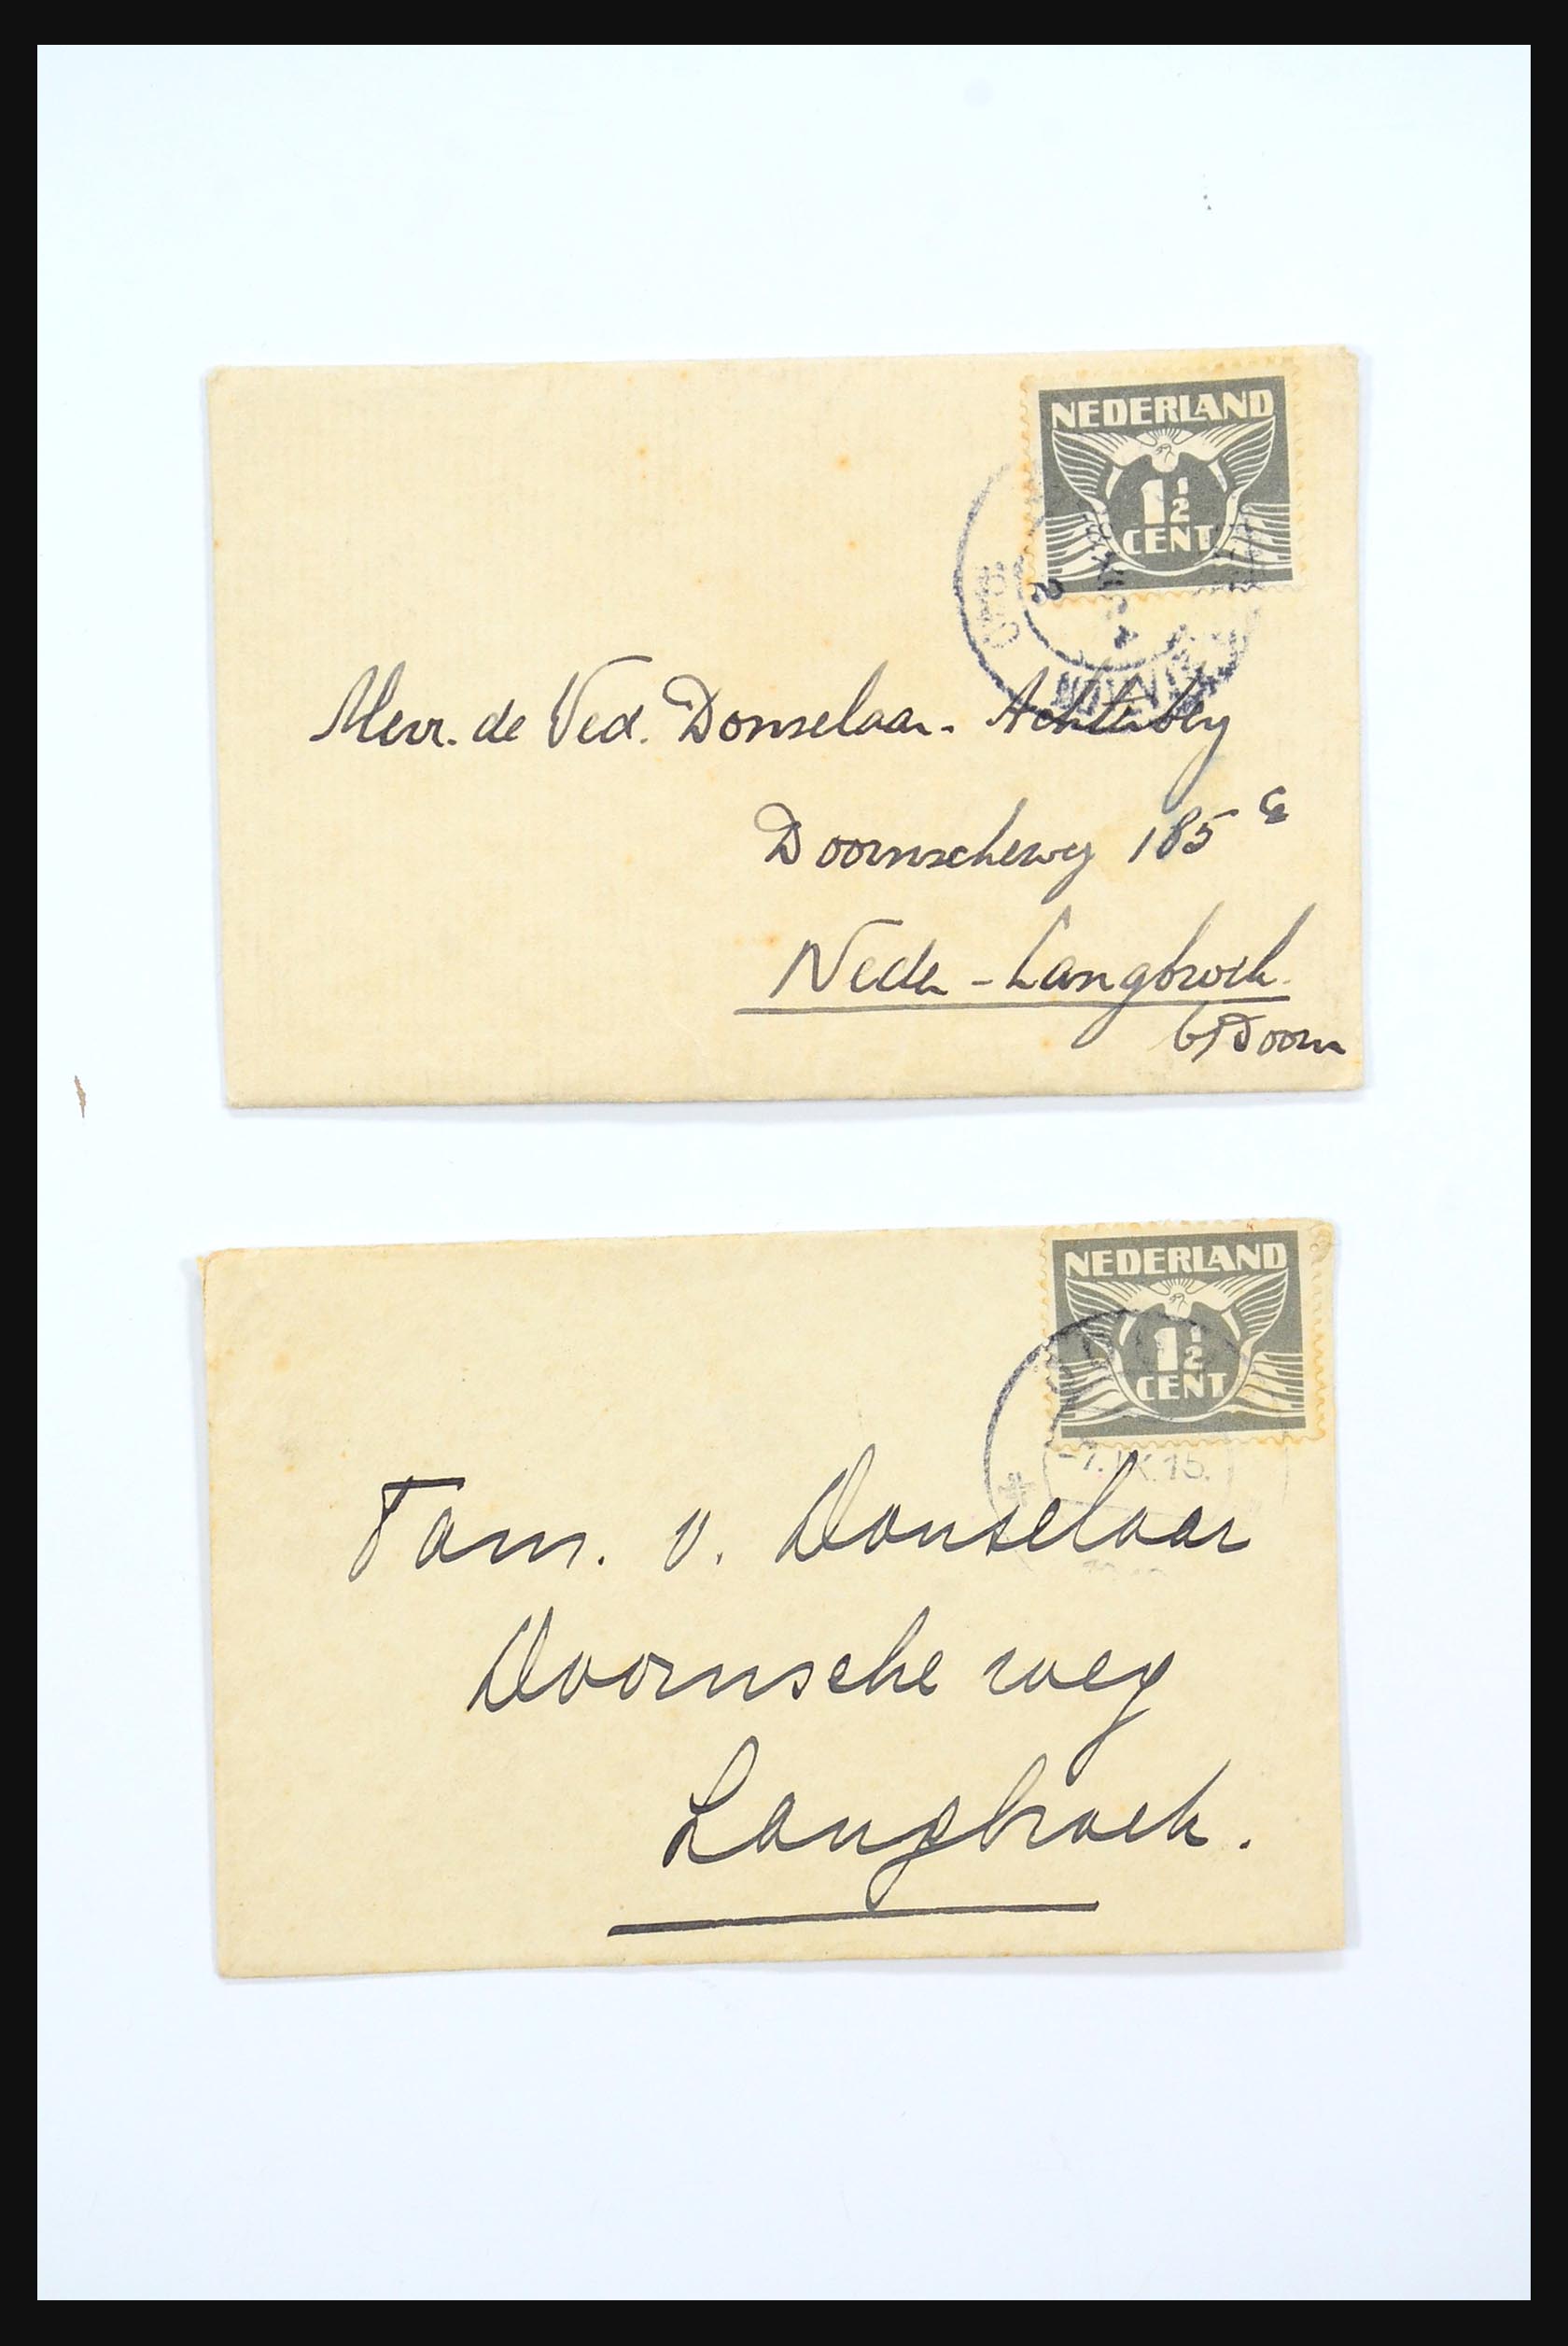 NEDERLAND
1½
CENT
Mevr. de Wed. Donselaar - Achterberg
Doornscheweg 185
Neder-Langbroek.
b/Doorn
NEDERLAND
1½
CENT
-7.IX.15.
Fam. v. Donselaar
Doornsche weg
Langbroek.